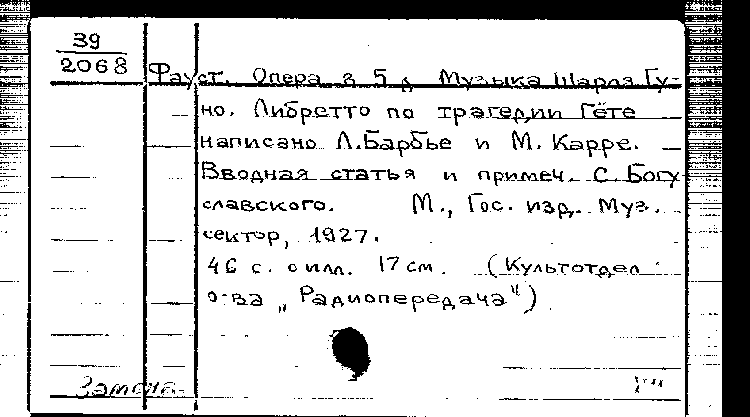 39
2068
Фауст. Опера в 5 д. Музыка Шарля Гу-
но. Либретто по трагедии Гёте
написано Л.Барбье и М. Карре.
Вводная статья и примеч. С. Богу
славского. М., Гос. изд. Муз.
сектор, 1927.
46 с. с илл. 17 см. (Культотдел
о-ва „Радиопередача")